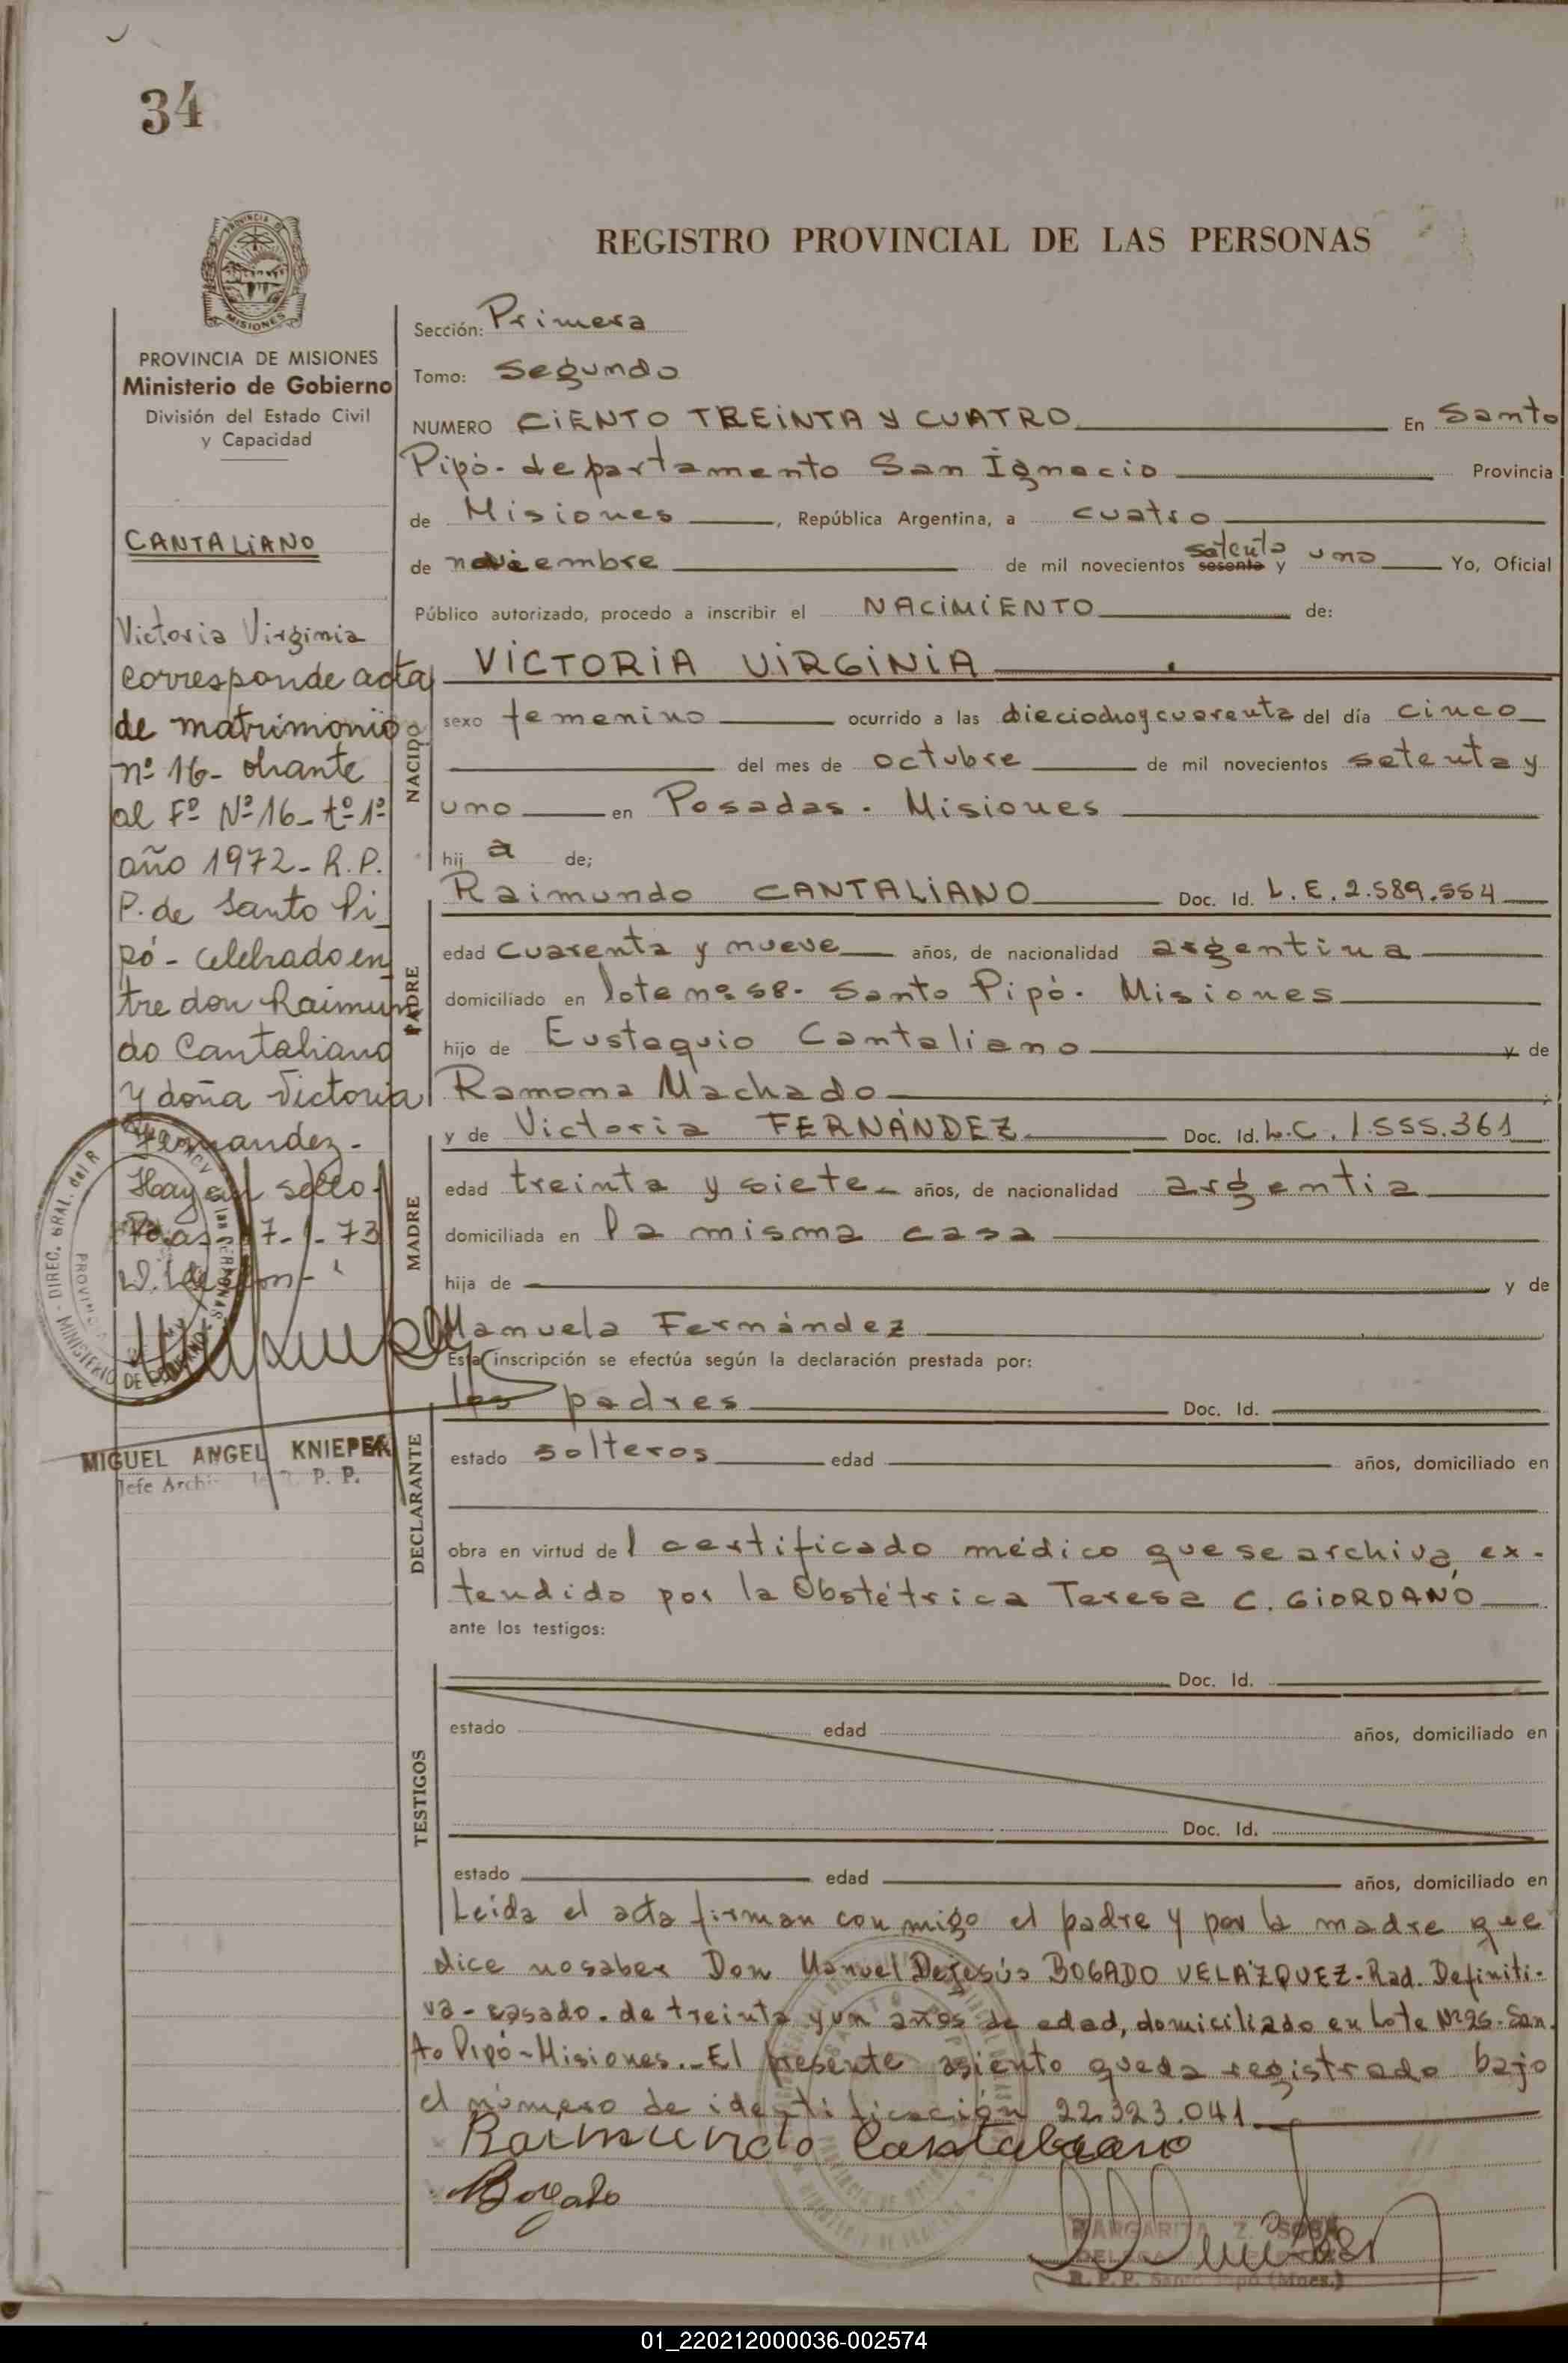 34
REGISTRO PROVINCIAL DE LAS PERSONAS
PROVINCIA DE MISIONES
Ministerio de Gobierno
División del Estado Civil
y Capacidad
CANTALIANO
Victoria Virginia
corresponde acta
de matrimonio
nº 16- obrante
al Fº Nº 16- tº 1º
año 1972- R.P.
P. de Santo Pi_
pó- celebrado en
tre don Raimun
do Cantaliano
y doña Victoria
Fernandez-
Hay un sello-
MIGUEL ANGEL KNIEPER
Jefe Archi R. P. P.
Sección: Primera
Tomo: Segundo
NUMERO CIENTO TREINTA Y CUATRO En Santo
Pipó- departamento San Ignacio Provincia
de Misiones, República Argentina, a cuatro
de noviembre de mil novecientos setenta sesenta y uno Yo, Oficial
Público autorizado, procedo a inscribir el NACIMIENTO de:
VICTORIA VIRGINIA
NACIDO
sexo femenino ocurrido a las dieciocho y cuarenta del día cinco
del mes de octubre de mil novecientos setenta y
uno en Posadas- Misiones
hij a de;
PADRE
Raimundo CANTALIANO Doc. Id. L.E. 2.589.554
edad cuarenta y nueve años, de nacionalidad argentina
domiciliado en lote nº 68- Santo Pipó- Misiones
hijo de Eustaquio Cantaliano y de
Ramona Machado
MADRE
y de Victoria FERNÁNDEZ Doc. Id. L.C. 1.555.361
edad treinta y siete- años, de nacionalidad argentia
domiciliada en la misma casa
hija de y de
Manuela Fernández
Esta inscripción se efectúa según la declaración prestada por:
DECLARANTE
los padres Doc. Id.
estado solteros edad años, domiciliado en
obra en virtud del certificado médico que se archiva, ex-
tendido por la Obstétrica Teresa C. GIORDANO
ante los testigos:
TESTIGOS
Doc. Id.
estado edad años, domiciliado en
Doc. Id.
estado edad años, domiciliado en
Leída el acta firman conmigo el padre y por la madre que
dice no saber Don Manuel Dejesús BOGADO VELÁZQUEZ- Rad. Definiti-
va- casado- de treinta y un años de edad, domiciliado en Lote Nº 26- San-
to Pipó- Misiones.- El presente asiento queda registrado bajo
el número de identificación 22.323.041
Raimundo Cantaliano
Bogado
MARGARITA Z. SOSA
R.P.P. Santo Pipó (Mnes.)
01_220212000036-002574